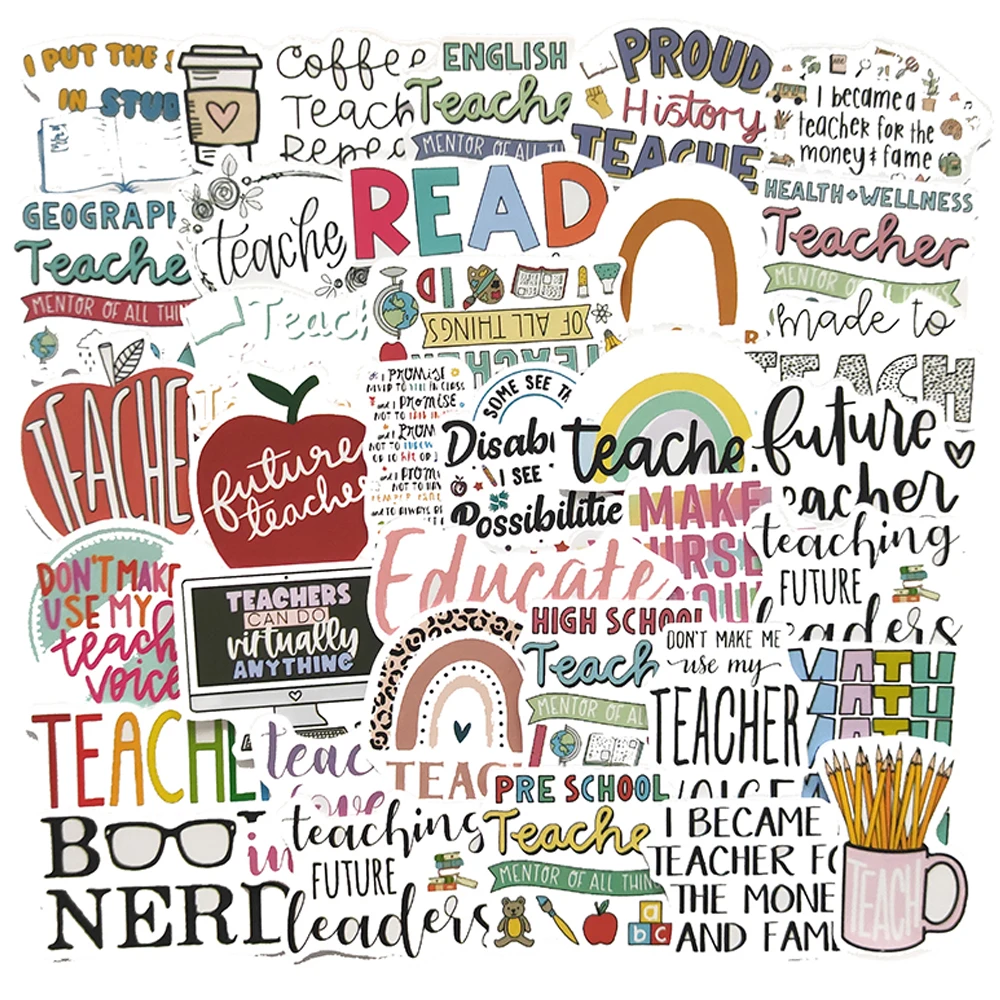 I PUT THE
IN STUD
Coffee
Teach
Repea
ENGLISH
Teache
MENTOR OF ALL TH
PROUD
History
TEACHE
I became a
teacher for the
money & fame
GEOGRAPH
Teache
MENTOR OF ALL THIN
teache
READ
HEALTH + WELLNESS
Teacher
MENTOR OF ALL THINGS
Teach
OF ALL THINGS
TEACHER
made to
TEACH
TEACHE
future
teacher
I PROMISE
NEVER TO YELL IN CLASS
and I PROMISE
NOT TO
and I PROM
NOT TO THROW
OR TO
and I PROMI
NOT TO HAV
and TO ALWAYS BE
SOME SEE TH
Disabi
I SEE
Possibilitie
teache
future
teacher
MAKE
URSE
YOU
teaching
FUTURE
leaders
DON'T MAKE
USE MY
teach
voice
TEACHERS
CAN DO
virtually
ANYTHING
Educate
HIGH SCHOOL
Teach
MENTOR OF AL
DON'T MAKE ME
use my
TEACHER
VOICE
MATH
MATH
MATH
TEACHE
teac
love
TEAC
BOO
NERD
in
teaching
FUTURE
leaders
PRE SCHOOL
Teache
MENTOR OF ALL THIN
abc
I BECAME
TEACHER FO
THE MONE
AND FAM
TEACH